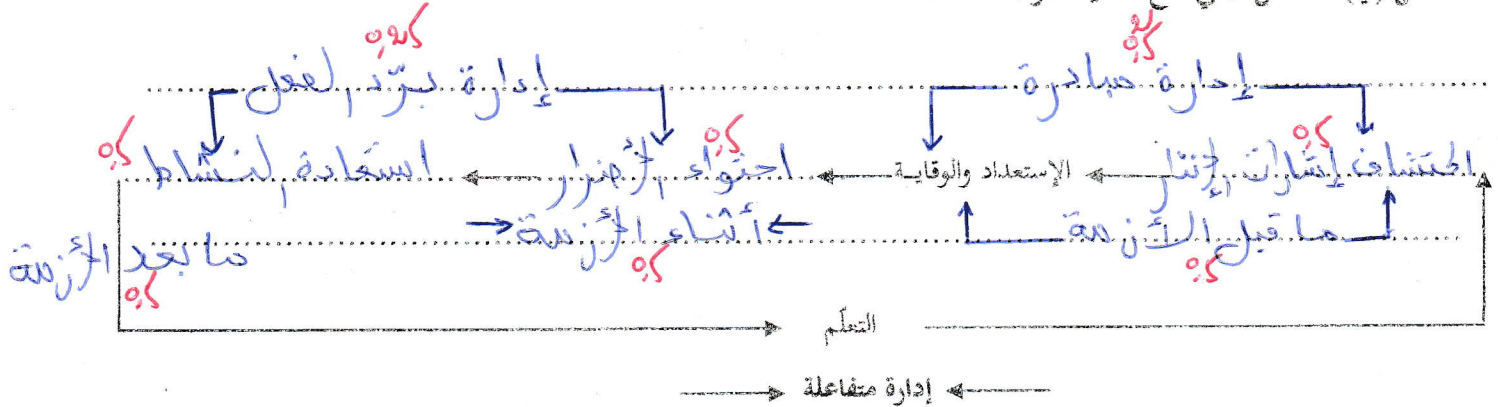 0,25 0,25
إدارة مبادرة إدارة برد الفعل
اكتشاف إشارات الإنذار الإستعداد والوقايـة احتواء الأضرار استعادة النشاط
0,5 0,5 0,5
ما قبل الأزمة أثناء الأزمة ما بعد الأزمة
0,5 0,5 0,5
التعلّم
إدارة متفاعلة